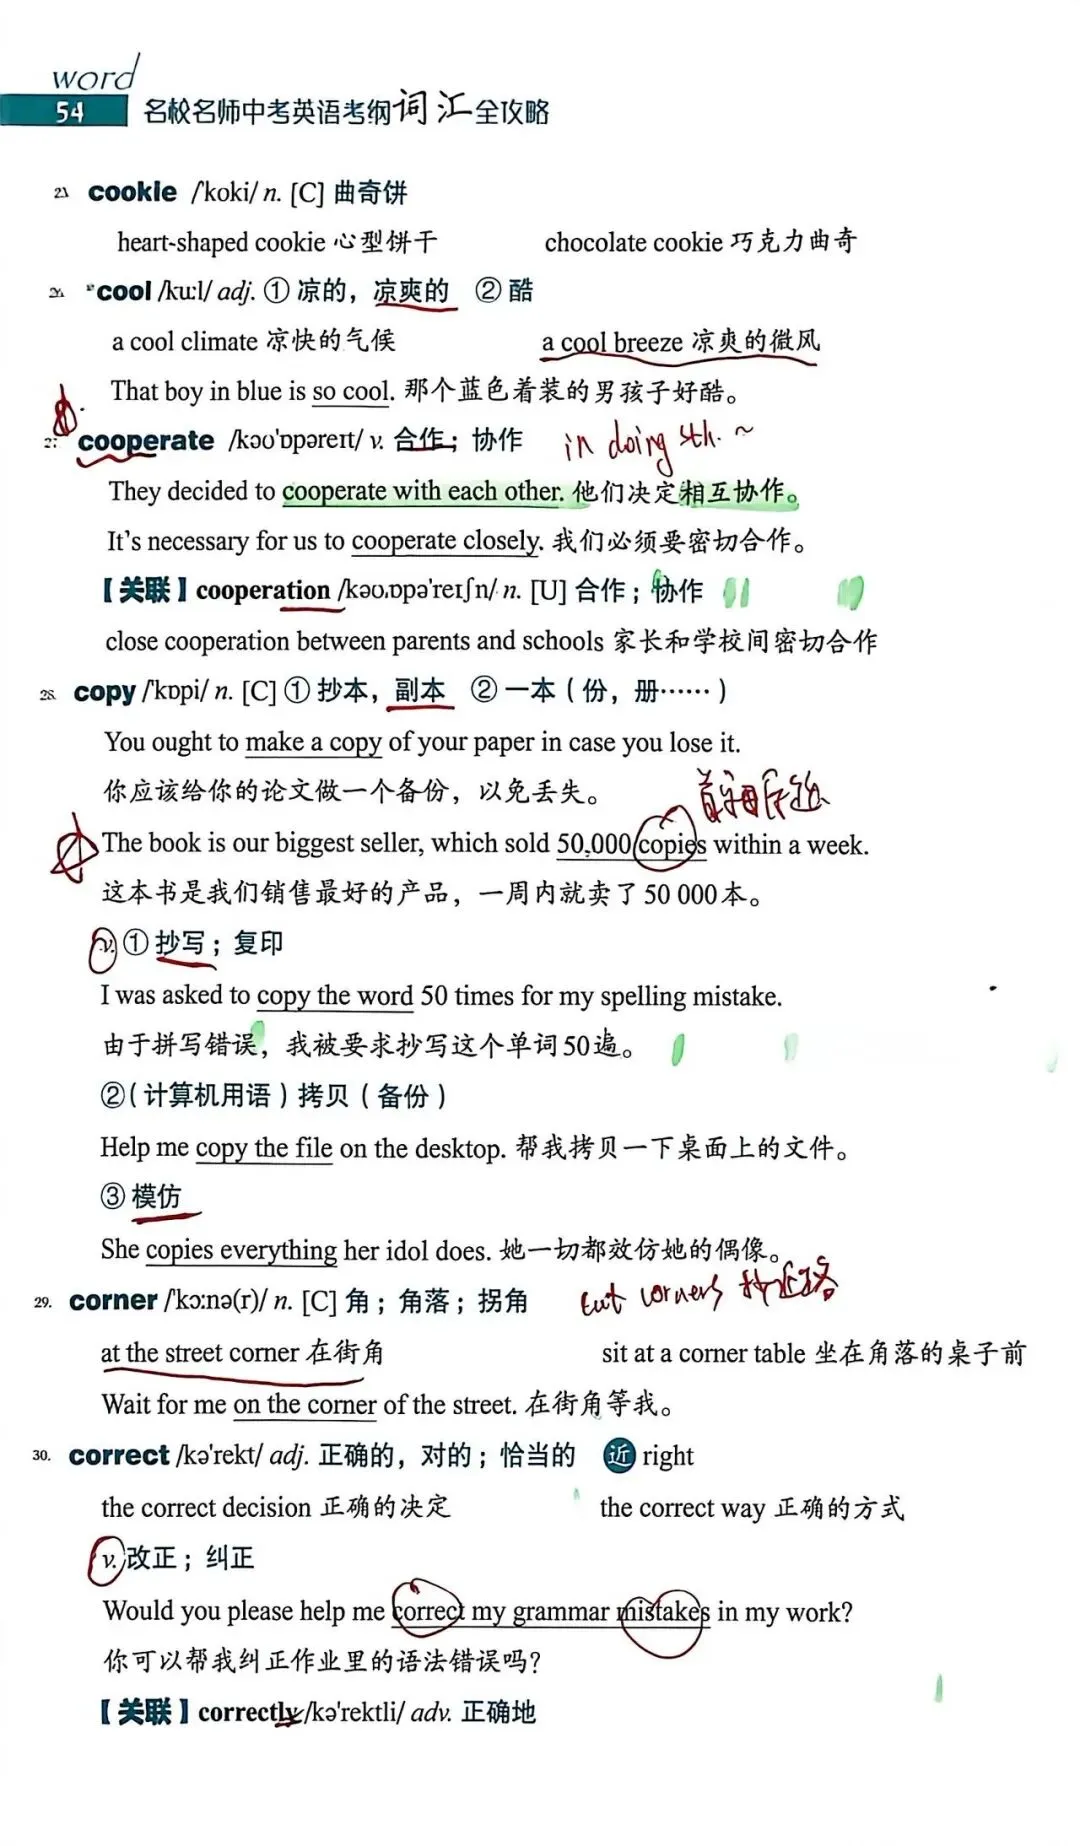 word
54 名校名师中考英语考纲词汇全攻略
cookie /'kʊki/ n. [C] 曲奇饼
heart-shaped cookie 心型饼干 chocolate cookie 巧克力曲奇
cool /kuːl/ adj. ① 凉的，凉爽的 ② 酷
a cool climate 凉快的气候 a cool breeze 凉爽的微风
That boy in blue is so cool. 那个蓝色着装的男孩子好酷。
cooperate /kəʊ'ɒpəreɪt/ v. 合作；协作 in doing sth. ~
They decided to cooperate with each other. 他们决定相互协作。
It's necessary for us to cooperate closely. 我们必须要密切合作。
【关联】cooperation /kəʊˌɒpə'reɪʃn/ n. [U] 合作；协作
close cooperation between parents and schools 家长和学校间密切合作
28. copy /'kɒpi/ n. [C] ① 抄本，副本 ② 一本（份，册……）
You ought to make a copy of your paper in case you lose it.
你应该给你的论文做一个备份，以免丢失。
首字母
The book is our biggest seller, which sold 50,000 copies within a week.
这本书是我们销售最好的产品，一周内就卖了 50 000本。
v. ① 抄写；复印
I was asked to copy the word 50 times for my spelling mistake.
由于拼写错误，我被要求抄写这个单词50遍。
②（计算机用语）拷贝（备份）
Help me copy the file on the desktop. 帮我拷贝一下桌面上的文件。
③ 模仿
She copies everything her idol does. 她一切都效仿她的偶像。
29. corner /'kɔːnə(r)/ n. [C] 角；角落；拐角 cut corners 抄近路
at the street corner 在街角 sit at a corner table 坐在角落的桌子前
Wait for me on the corner of the street. 在街角等我。
30. correct /kə'rekt/ adj. 正确的，对的；恰当的 近 right
the correct decision 正确的决定 the correct way 正确的方式
v. 改正；纠正
Would you please help me correct my grammar mistakes in my work?
你可以帮我纠正作业里的语法错误吗？
【关联】correctly /kə'rektli/ adv. 正确地